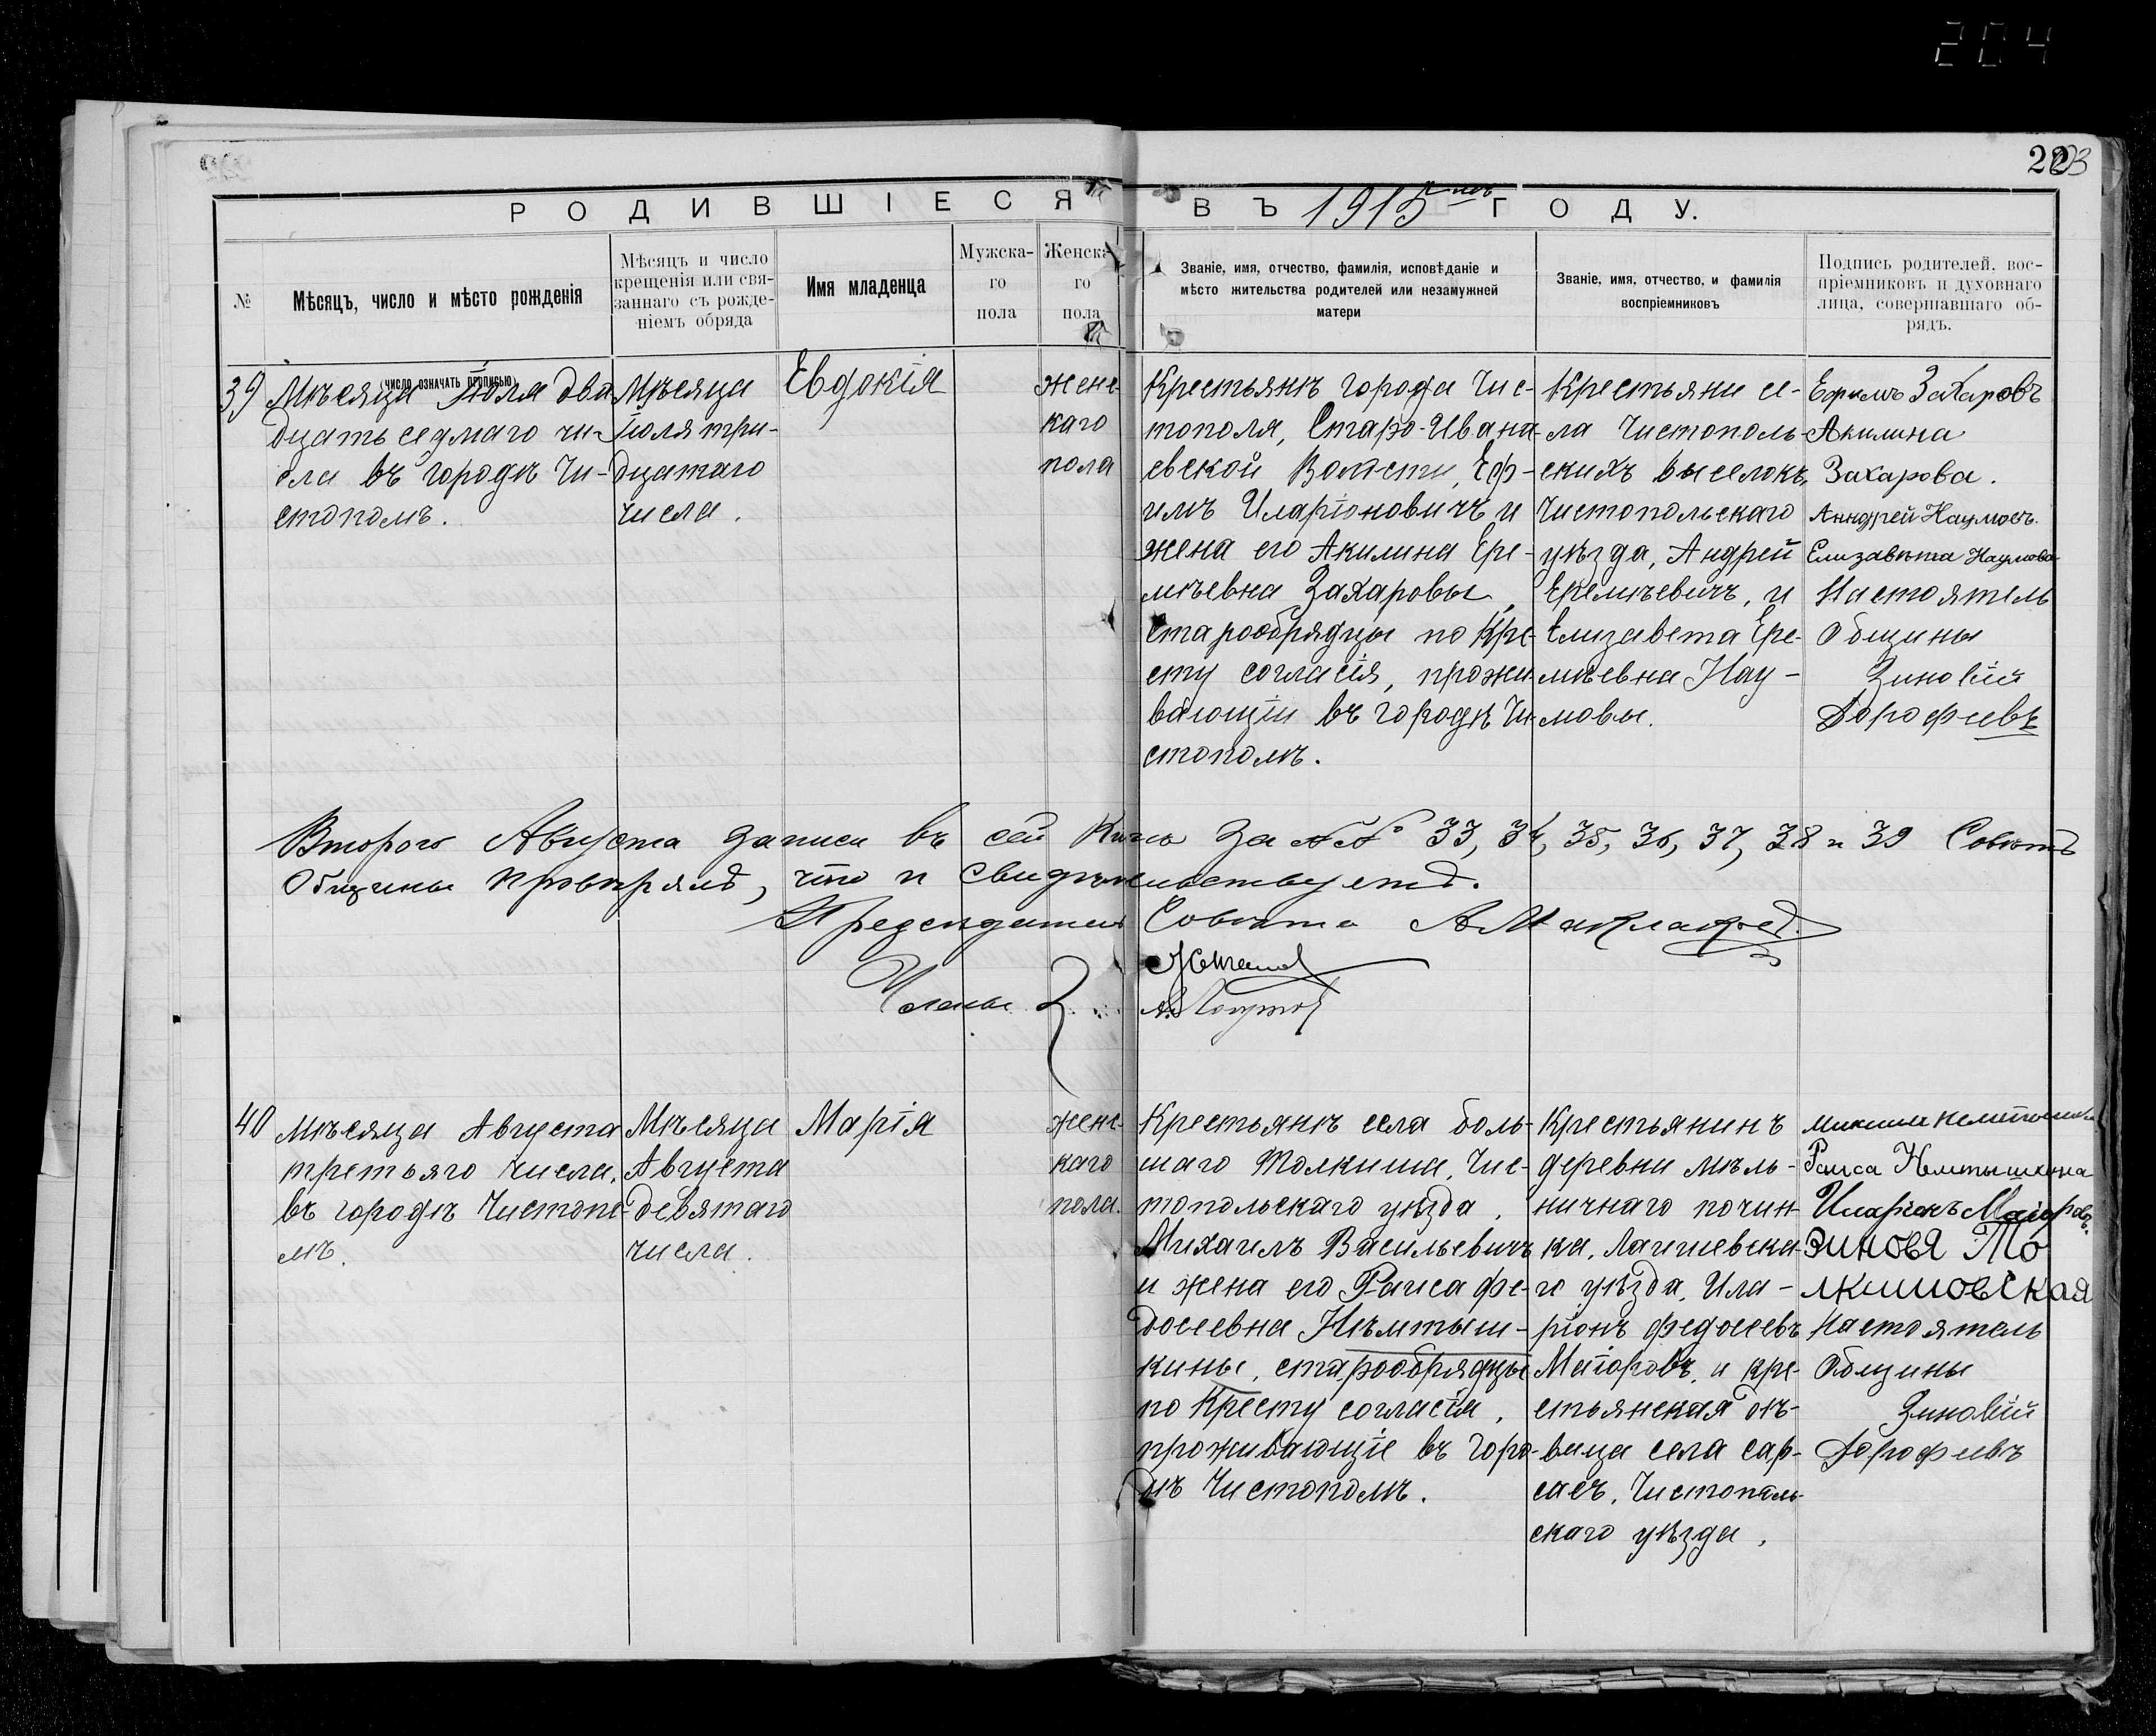 204
22
203
РОДИВШІЕСЯ ВЪ 1915 мъ ГОДУ.
№
Мѣсяцъ, число и мѣсто рожденія
(число означать прописью)
Мѣсяцъ и число
крещенія или свя-
заннаго съ рожде-
ніемъ обряда
Имя младенца
Мужска-
го
пола
Женска-
го
пола
Званіе, имя, отчество, фамилія, исповѣданіе и
мѣсто жительства родителей или незамужней
матери
Званіе, имя, отчество, и фамилія
воспріемниковъ
Подпись родителей, вос-
пріемниковъ и духовнаго
лица, совершавшаго об-
рядъ.
39
Мѣсяца Іюля два
дцать седмаго чи-
сла въ городѣ Чи-
стополѣ.
Мѣсяца
Іюля три-
дцатаго
числа.
Евдокія
женс
каго
пола
Крестьянѣ города Чис-
тополя, Старо-Ивана-
евской Волости, Еф-
имъ Иларіоновичъ и
жена его Акилина Ере-
мѣевна Захаровы,
старообрядцы по Кре-
сту согласія, прожи-
вающіи въ городѣ Чи-
стополѣ.
Крестьяни се-
ла Чистополь-
скихъ выселокъ,
Чистопольскаго
уѣзда, Андрей
Еремѣевичъ, и
Елизавета Ере-
мѣевна Нау-
мовы.
Ефимъ Захаровъ
Акилина
Захарова.
Анндрей Наумовъ.
Елизавѣта Наумова
Настоятель
Общины
Зиновій
Дорофеевъ
Второго Августа записи въ сей Книгѣ за №№ 33, 34, 35, 36, 37, 38 и 39 Совѣтъ
Общины провѣрялъ, что и свидѣтельствуетъ.
Предсѣдатель Совѣта А Маклаковъ.
Члены
40
Мѣсяца Августа
третьяго числа,
въ городѣ Чистопо-
лѣ.
Мѣсяца
Августа
девятаго
числа.
Марія
женс-
каго
пола.
Крестьянѣ села Боль-
шаго Толкиша, Чис-
топольскаго уѣзда,
Михаилъ Васильевичъ
и жена его Раиса Фе-
досеевна Нѣмтыш-
кины, старообрядцы
по Кресту согласія,
проживающіе въ горо-
дѣ Чистополѣ.
Крестьянинъ
деревни мѣль-
ничнаго почин-
ка, Лаишевска-
го уѣзда, Ила-
ріонъ Федосеевъ
Маіоровъ, и кре-
стьянская дѣ-
вица села сар-
сасъ, Чистополь-
скаго уѣзда,
Раиса Немтышкина
Иларіонъ Маіоровъ.
Зиновя То
лкишовская
Настоятель
Общины
Зиновій
Дорофеевъ